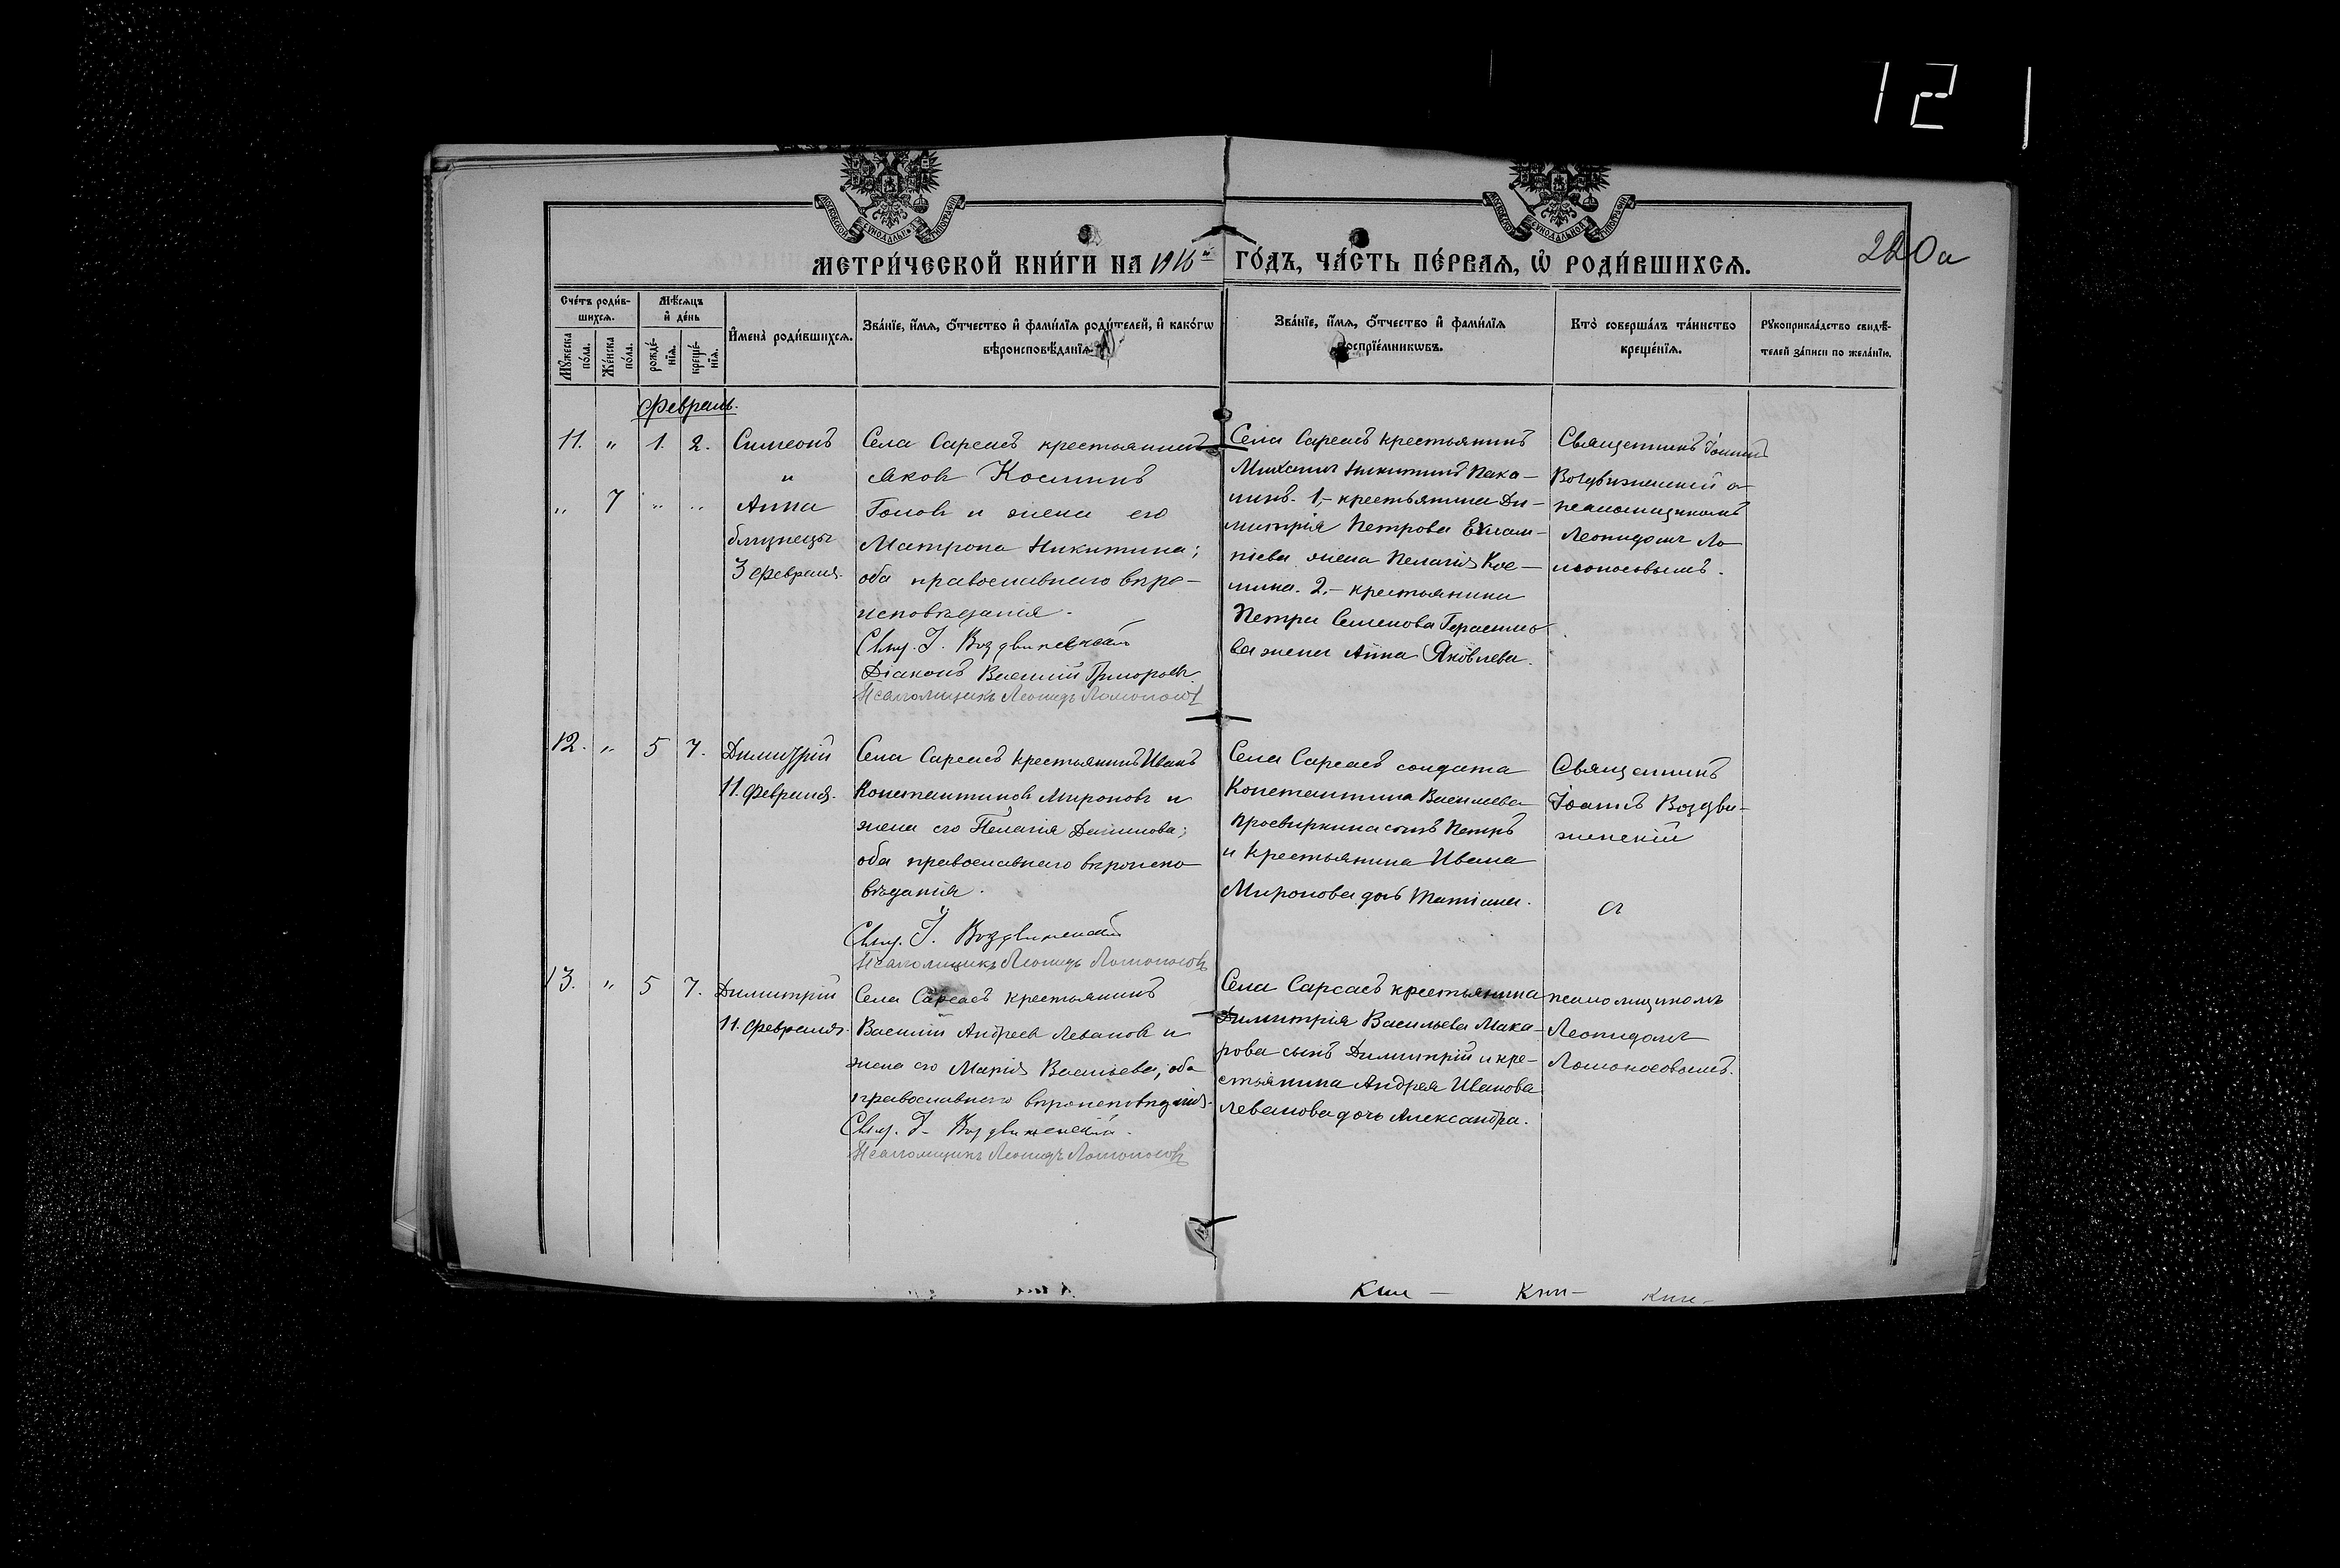 121
МЕТРИ́ЧЕСКОЙ КНИ́ГИ НА 1916й ГО́ДЪ, ЧА́СТЬ ПЕ́РВАЯ, Ѡ҆ РОДИ́ВШИХСЯ.
220а
Сче́тъ роди́в-
шихся.
Мѣ́сяцъ
и҆ де́нь
Мꙋ́жеска
по́ла.
Же́нска
по́ла.
рожде́-
нїѧ.
креще́-
нїѧ.
И҆мена̀ роди́вшихся.
Зва́нїе, и҆́мѧ, ѻ҆́тчество и҆ фами́лїѧ роди́телей, и҆ како́гѡ
вѣроисповѣ́данїѧ.
Зва́нїе, и҆́мѧ, ѻ҆́тчество и҆ фами́лїѧ
воспрїе́мникѡвъ.
Кто̀ соверша́лъ та́инство
креще́нїѧ.
Рꙋкоприкла́дство свидѣ́-
телей за́писи по жела́нїю.
Февраль.
11. „ 1. 2. Симеонъ
и
„ 7 „ „ Анна
близнецы
3 Февраля.
Села Сарсасъ крестьянинъ
Яковъ Косминъ
Гоновъ и жена его
Матрона Никитина;
оба православнаго вѣро-
исповѣданія.
Свящ. І. Воздвиженскій
Діаконъ Василій Григорьевъ
Псаломщикъ Леонидъ Ломоносовъ
Села Сарсасъ крестьянинъ
Михаилъ Никитинъ Пака-
линъ. 1,- крестьянина Ди-
митрія Петрова
жена Пелагія Кос-
мина. 2,- крестьянина
Петра Семенова Герасимо
ва жена Анна Яковлева.
Священникъ Іоаннъ
Воздвиженскій съ
псаломщикомъ
Леонидомъ Ло-
моносовымъ.
12. „ 5 7. Димитрій
11. Февраля.
Села Сарсасъ крестьянинъ Иванъ
Константиновъ Мироновъ и
жена его Пелагія Данилова;
оба православнаго вѣроиспо
вѣданія.
Свящ. І. Воздвиженскій
Псаломщикъ Леонидъ Ломоносовъ
Села Сарсасъ солдата
Константина Васильева
Просвиркина сынъ Петръ
и крестьянина Ивана
Миронова дочь Татіана.
Священникъ
Іоаннъ Воздви-
женскій
съ
13. „ 5 7. Димитрій
11. Февраля.
Села Сарсасъ крестьянинъ
Василій Андреевъ Левановъ и
жена его Марія Васильева, оба
православнаго вѣроисповѣданія.
Свящ. І. Воздвиженскій.
Псаломщикъ Леонидъ Ломоносовъ
Села Сарсасъ крестьянина
Димитрія Васильева Мака-
рова сынъ Димитрій и кре-
стьянина Андрея Иванова
Леванова дочь Александра.
псаломщикомъ
Леонидомъ
Ломоносовымъ.